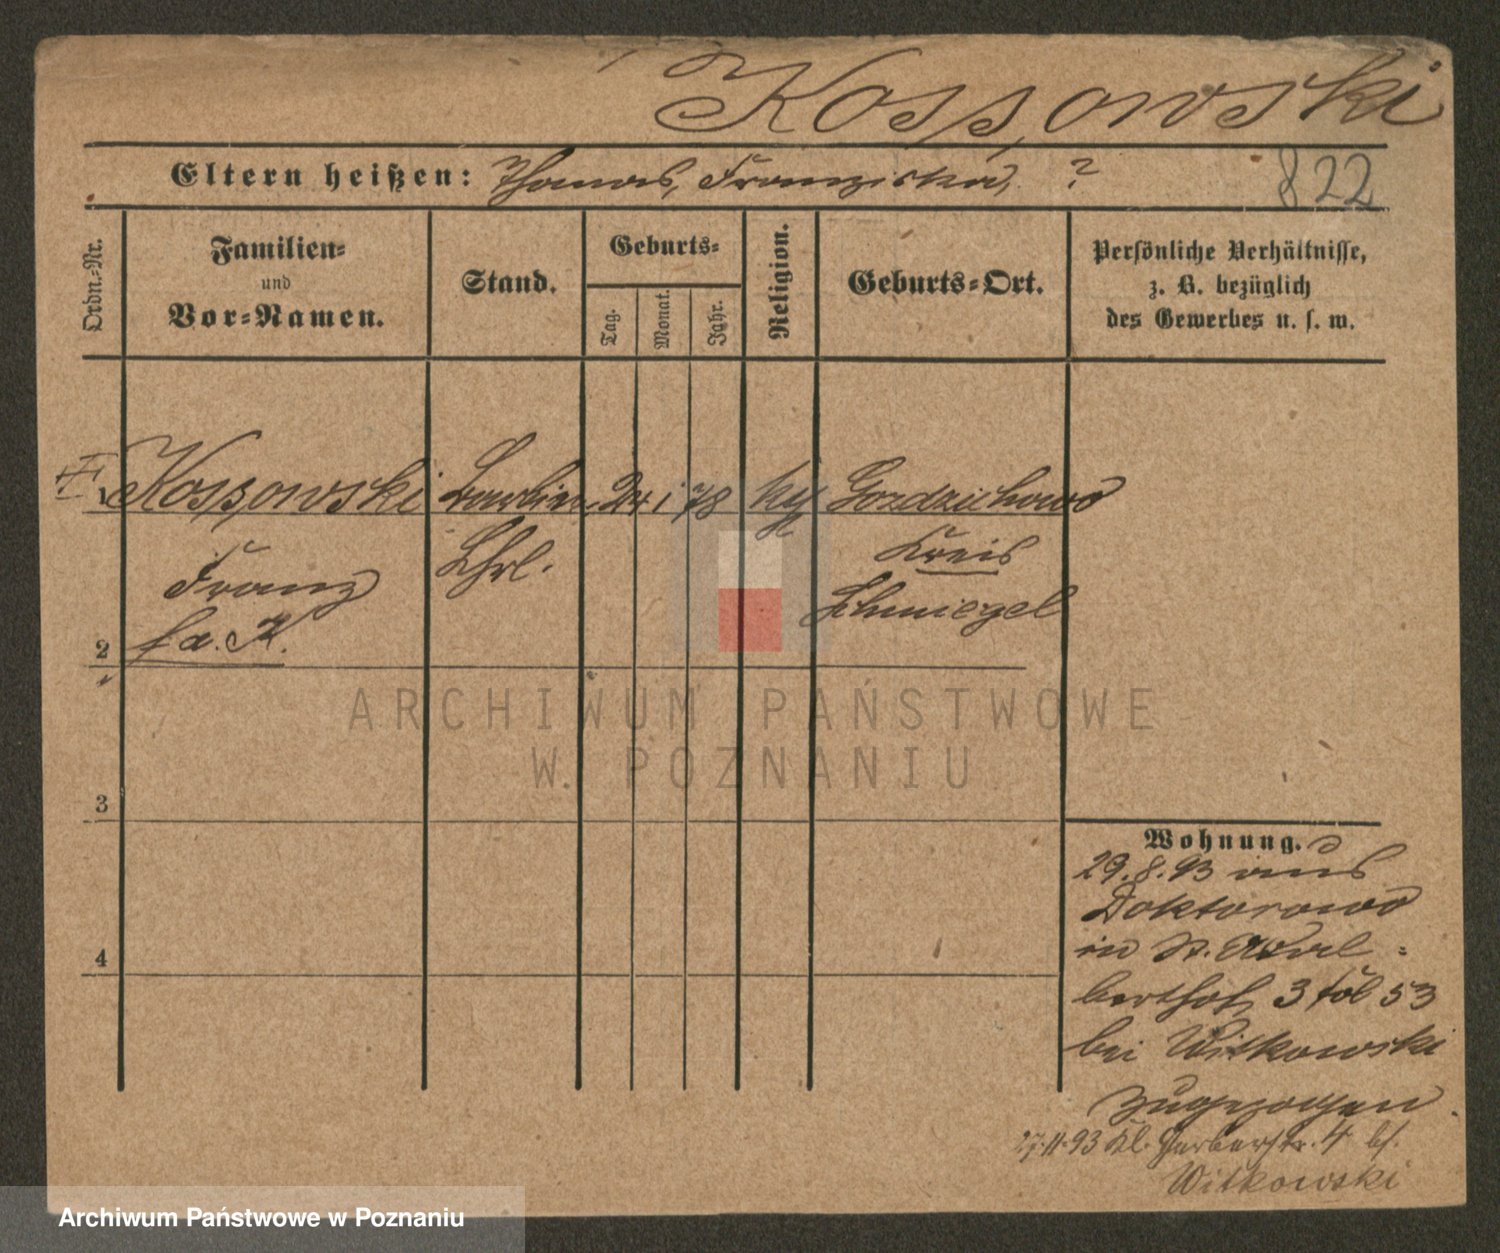 Kossowski
Eltern heißen: Thomas, Franziska, ?
822
Ordn.-Nr.
Familien-
und
Vor-Namen.
Stand.
Geburts-
Tag.
Monat.
Jahr.
Religion.
Geburts-Ort.
Persönliche Verhältnisse,
z. B. bezüglich
des Gewerbes u. s. w.
1 Kossowski 24 1 78 kth Gozdzichowo
Lhrl. Kreis
Franz Schmiegel
2
3
4
Wohnung.
29.8.93 aus
Doktorowo
in St. Adal-
berthof 3 53
bei Witkowski
zugezogen.
27.11.93 Kl. Gerberstr. 4 bf.
Witkowski
ARCHIWUM PAŃSTWOWE
W POZNANIU
Archiwum Państwowe w Poznaniu